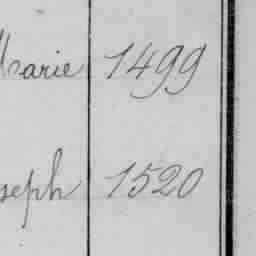 Marie 1499
seph 1520